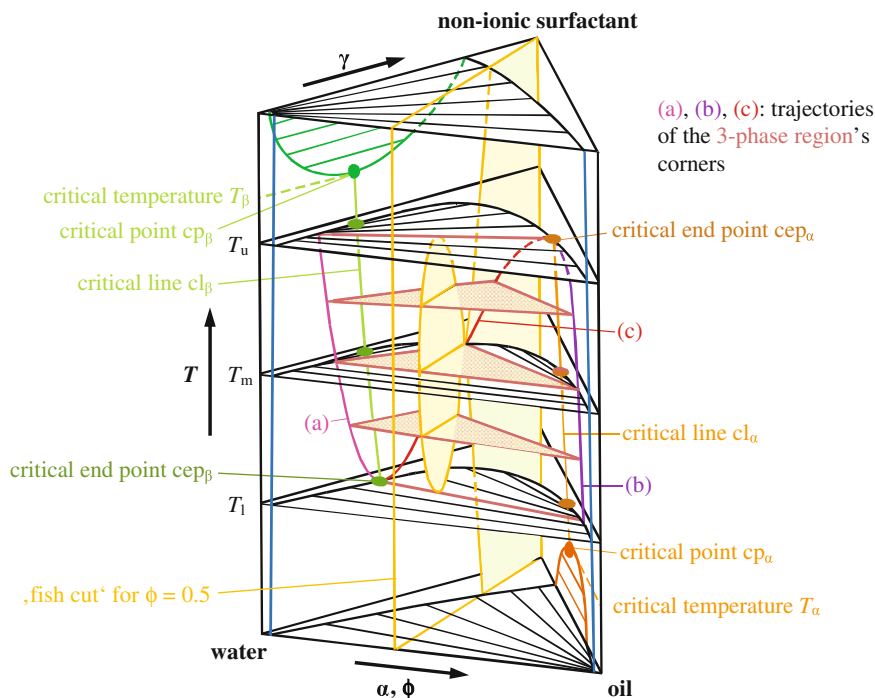 non-ionic surfactant
γ
(a), (b), (c): trajectories
of the 3-phase region's
corners
critical temperature Tβ
critical point cpβ
Tu
critical end point cepα
critical line clβ
(c)
T
Tm
(a)
critical line clα
critical end point cepβ
(b)
Tl
critical point cpα
‚fish cut‘ for ϕ = 0.5
critical temperature Tα
water
α, ϕ
oil